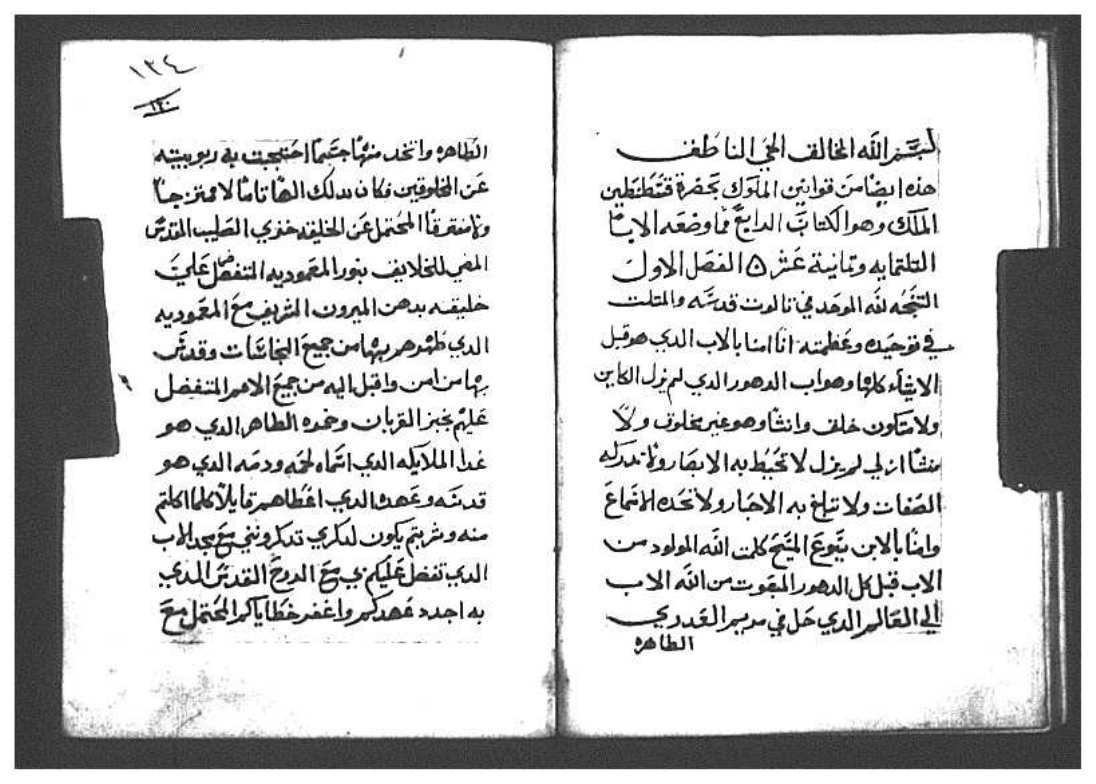 بسم الله الخالق الحي الناطق
هذه ايضا من قوانين الملوك بحضرة قسطنطين
الملك وهو الكتاب الرابع مما وضعه الابا
التلتمايه وتمانية عشر ٥ الفصل الاول
التسبحه لله الموحد في تالوت قدسه والمتلت
في توحيده وعظمته انا امنا بالاب الدي هو قبل
الاشياء كلها وهو اب الدهور الدي لم يزل الكاين
ولا متكاون خلق وانشا وهو غير مخلوق ولا
منشا ازلي لم يزل لا تحيط به الابصار ولا تدركه
الصفات ولا تبلغ به الاخبار ولا تحده الاسماع
وامنا بالابن يسوع المسيح كلمت الله المولود من
الاب قبل كل الدهور المبعوت من الله الاب
الي العالم الدي حل في مريم العدري
الطاهره
١٣٤
١٣٠
الطاهره واتخد منها جسما احتجبت به ربوبيته
عن المخلوقين فكان بدلك الها تاما لا ممتزجا
ولا متفرقا المحتمل عن الخليقه خزي الصليب المقدس
المضي للخلايق بنور المعموديه المتفضل علي
خليقته بدهن الميرون الشريف مع المعموديه
الدي طهرهم بها من جميع النجاسات وقدس
بها من امن واقبل اليه من جميع الامم المتفضل
عليهم بخبز القربان وخمره الطاهر الدي هو
غدا الملايكه الدي اسماه لحمه ودمه الدي هو
قدسه وعهده الدي اعطاهم قايلا كلما اكلتم
منه وشربتم يكون لدكري تدكرونني مع مجد الاب
الدي تفضل عليكم بي مع الروح القدس الدي
به اجدد عهدكم واغفر خطاياكم المحتمل مع